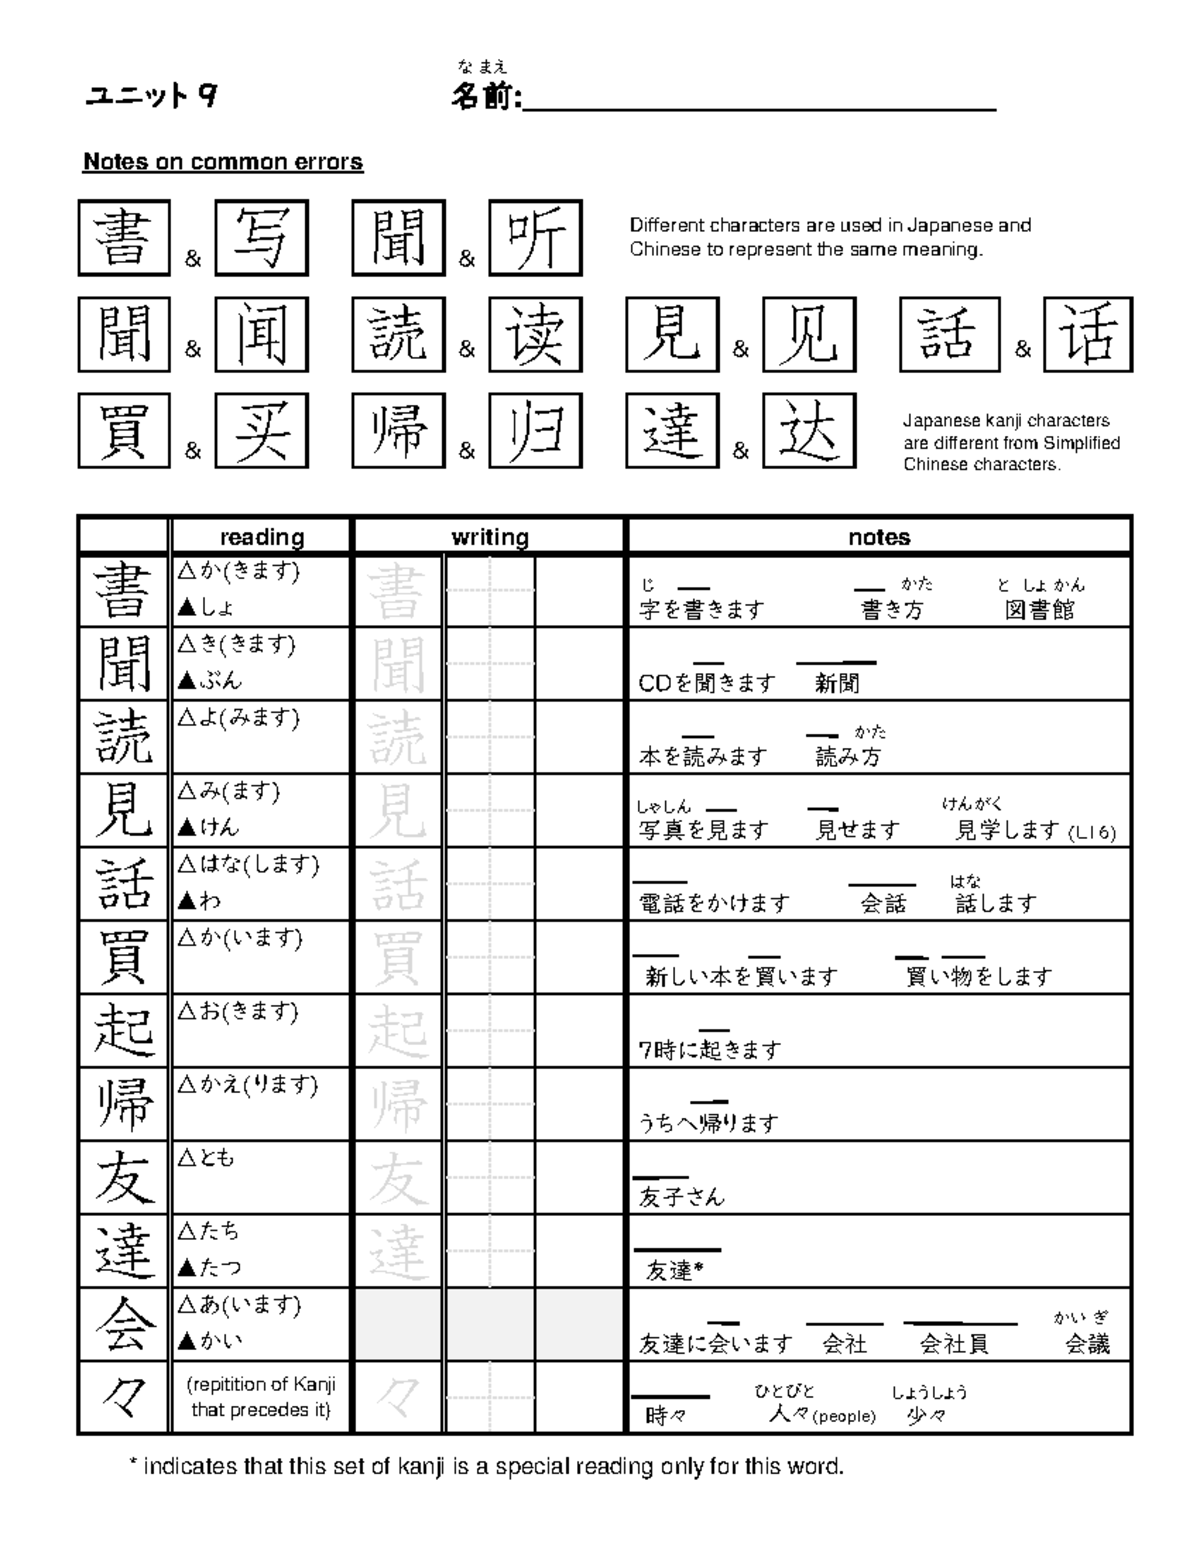 な まえ
ユニット 9 名前:
Notes on common errors
書 & 写 聞 & 听 Different characters are used in Japanese and
Chinese to represent the same meaning.
聞 & 闻 読 & 读 見 & 见 話 & 话
買 & 买 帰 & 归 達 & 达 Japanese kanji characters
are different from Simplified
Chinese characters.
reading writing notes
書 △か(きます) 書 じ かた と しょ かん
▲しょ 字を書きます 書き方 図書館
聞 △き(きます) 聞
▲ぶん CDを聞きます 新聞
読 △よ(みます) 読 かた
本を読みます 読み方
見 △み(ます) 見 しゃしん けんがく
▲けん 写真を見ます 見せます 見学します (L16)
話 △はな(します) 話 はな
▲わ 電話をかけます 会話 話します
買 △か(います) 買
新しい本を買います 買い物をします
起 △お(きます) 起
7時に起きます
帰 △かえ(ります) 帰
うちへ帰ります
友 △とも 友
友子さん
達 △たち 達
▲たつ 友達*
会 △あ(います) かい ぎ
▲かい 友達に会います 会社 会社員 会議
々 (repitition of Kanji 々 ひとびと しょうしょう
that precedes it) 時々 人々(people) 少々
* indicates that this set of kanji is a special reading only for this word.